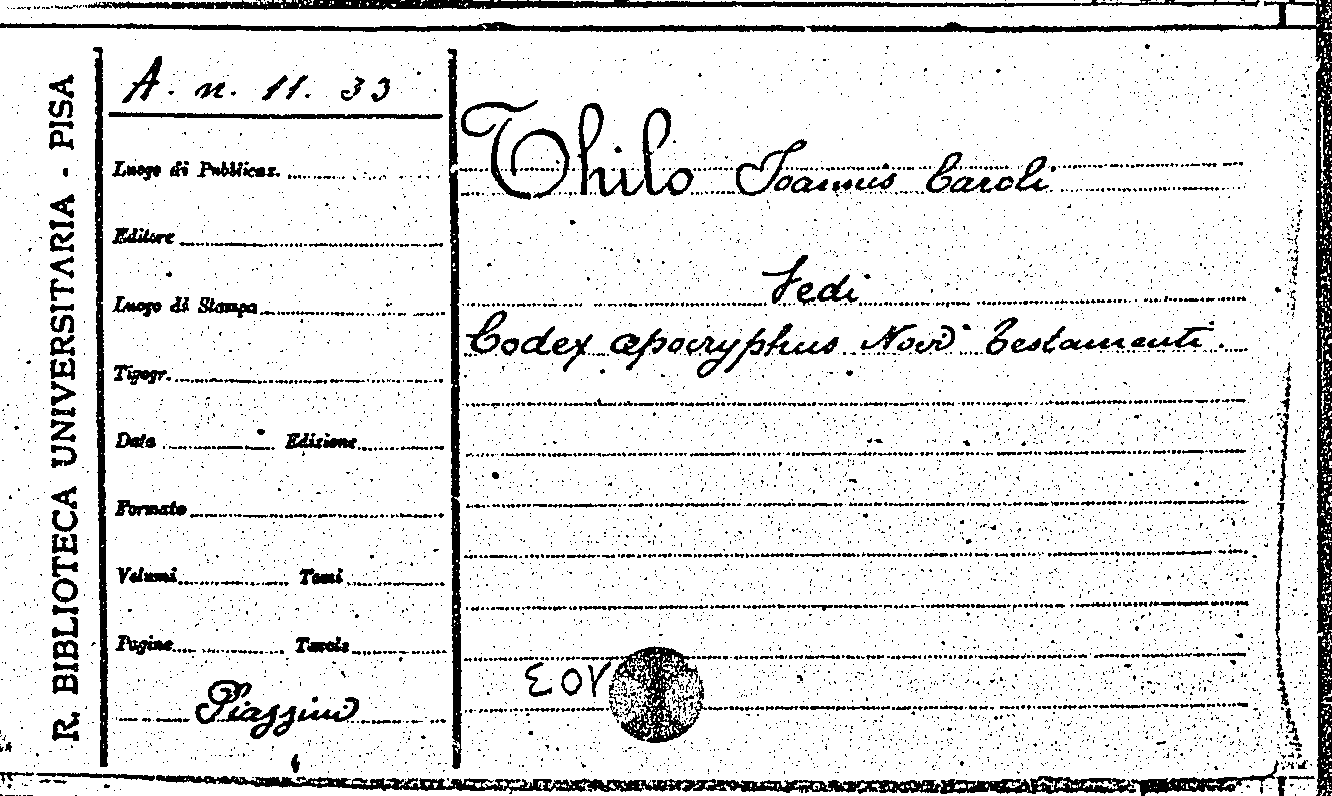 R. BIBLIOTECA UNIVERSITARIA - PISA
A. n. 11. 33
Luogo di Pubblicaz.
Editore
Luogo di Stampa
Tipogr.
Data Edizione
Formato
Volumi Tomi
Pagine Tavole
Piaggino
Thilo Ioannis Caroli
Vedi
Codex apocryphus Novi Testamenti.